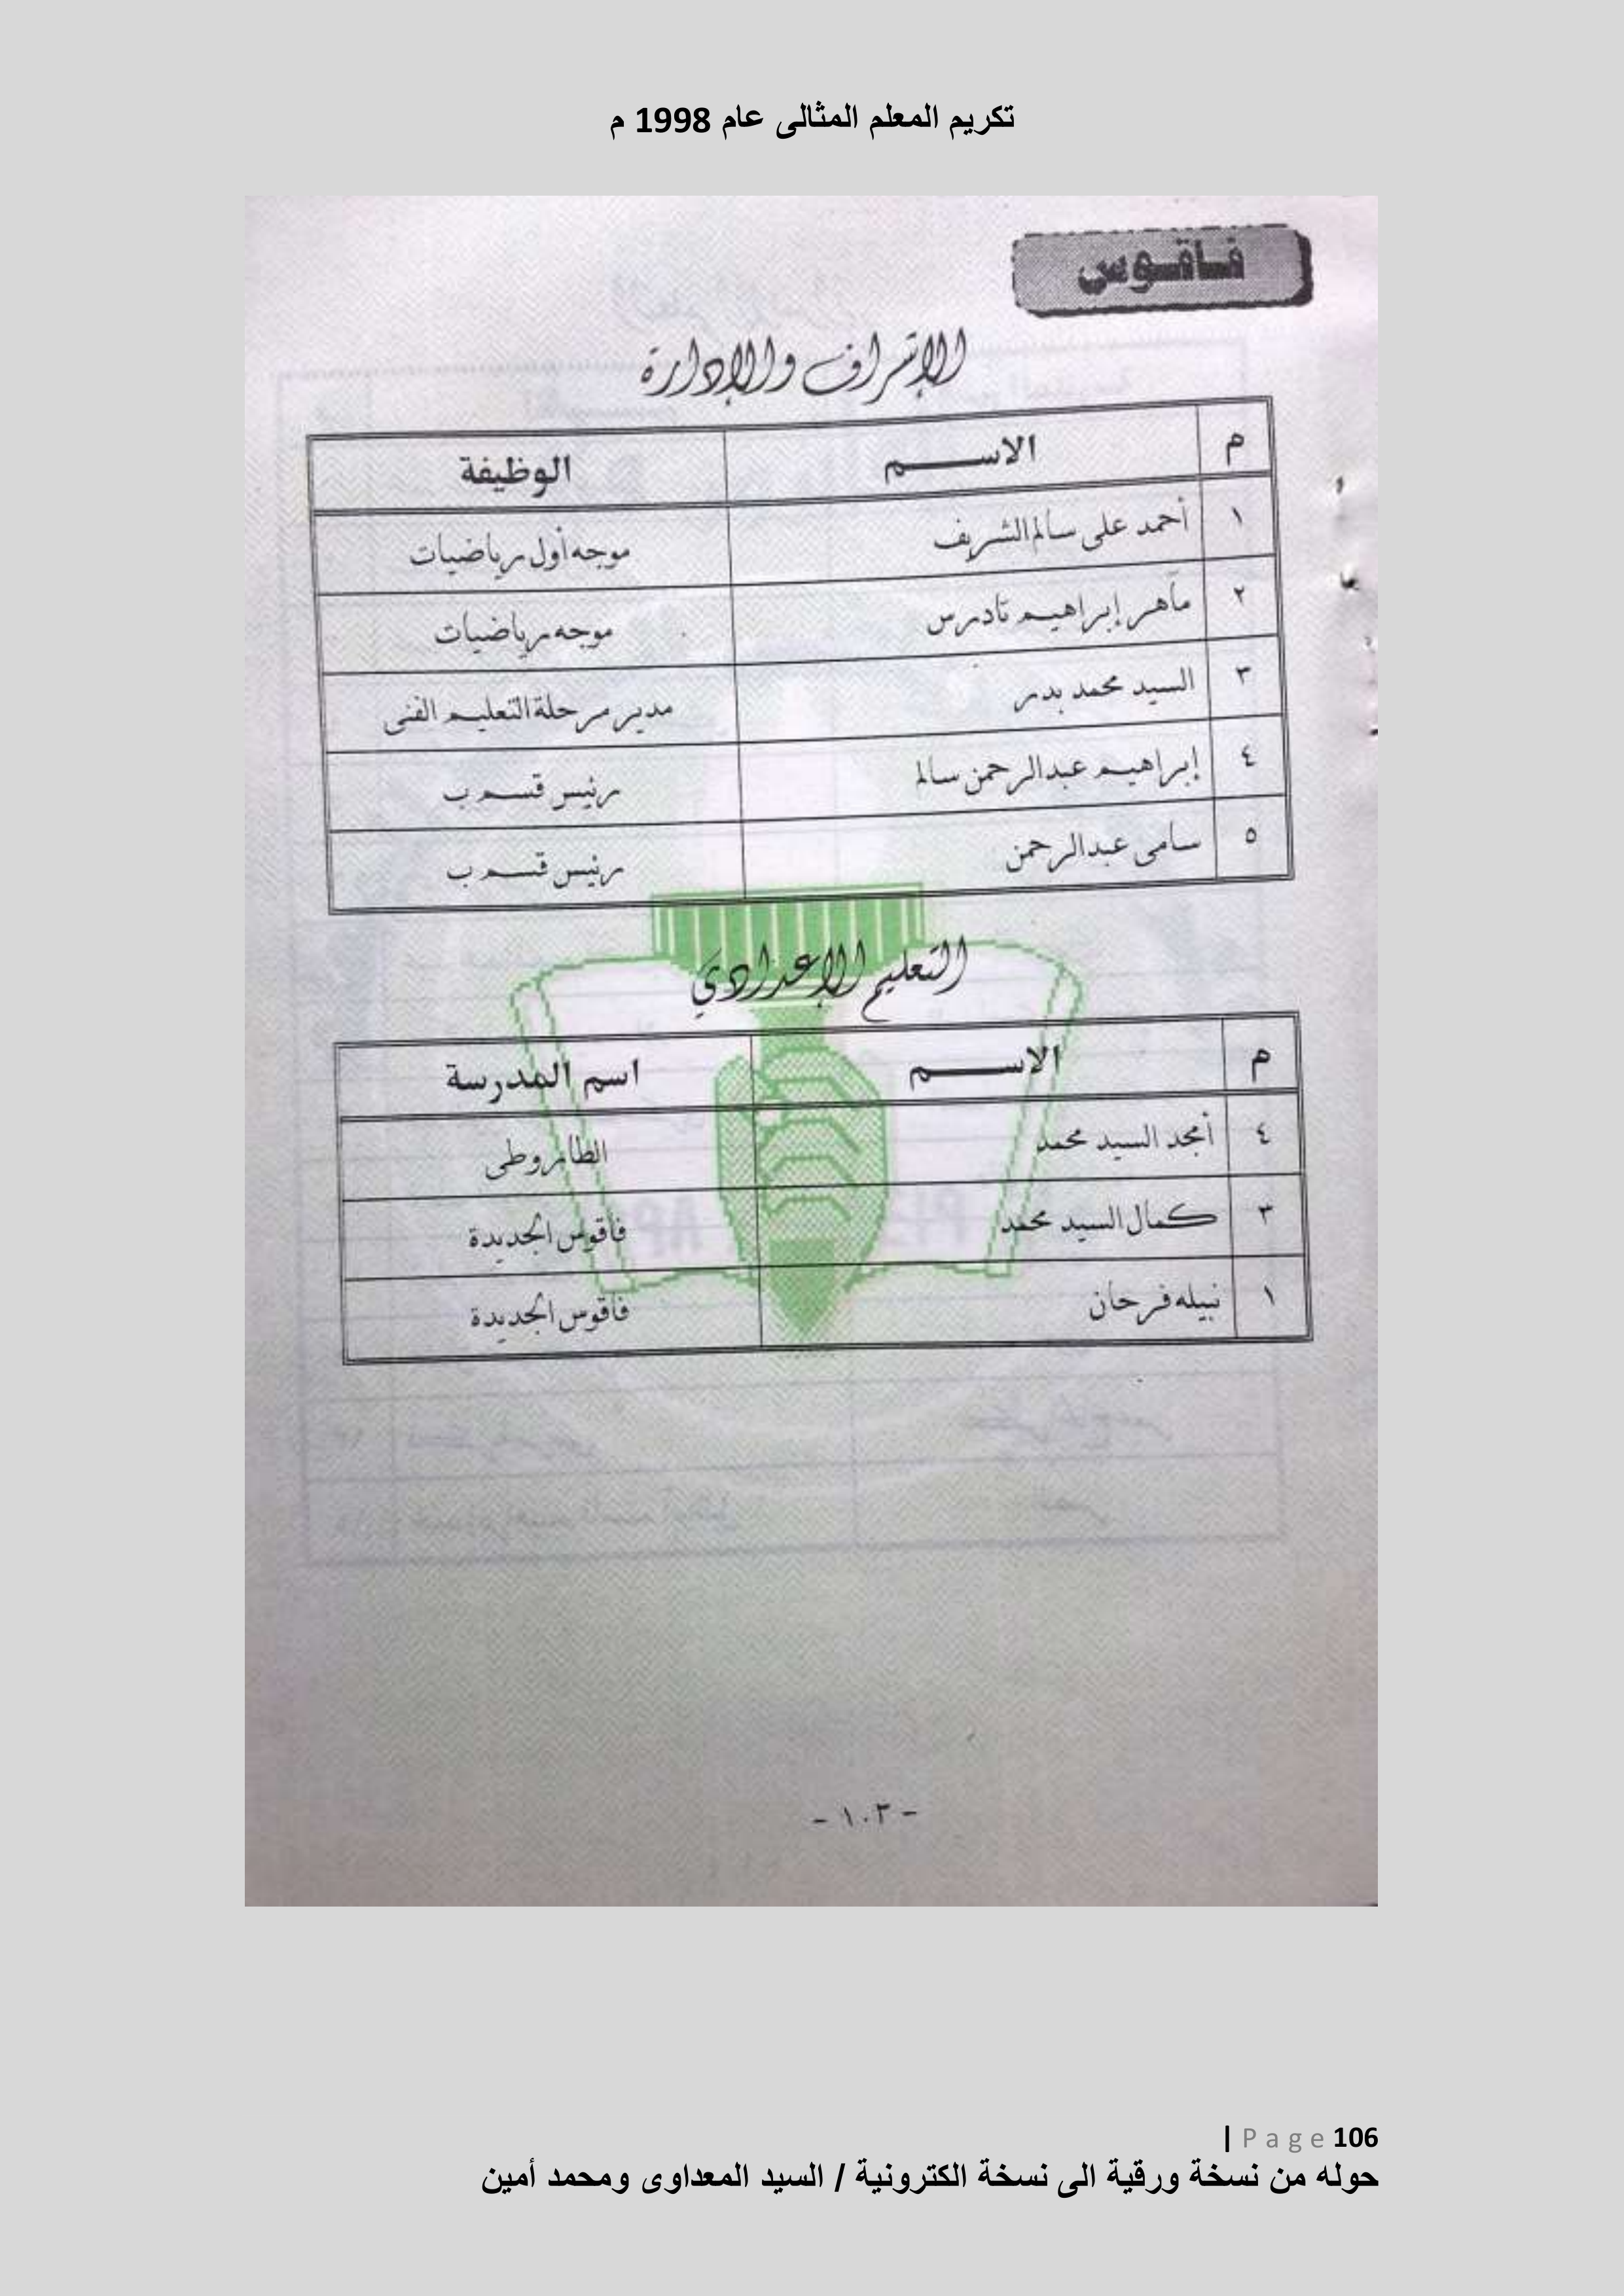 تكريم المعلم المثالى عام 1998 م
فاقوس
الإشراف والإدارة
م الاسم الوظيفة
١ أحمد على سالم الشريف موجه أول رياضيات
٢ ماهر إبراهيم تادرس موجه رياضيات
٣ السيد محمد بدر مدير مرحلة التعليم الفنى
٤ إبراهيم عبدالرحمن سالم رئيس قسم ب
٥ سامى عبدالرحمن رئيس قسم ب
التعليم الإعدادي
م الاسم اسم المدرسة
٤ أمجد السيد محمد الطاروطى
٣ كمال السيد محمد فاقوس الجديدة
١ نبيله فرحان فاقوس الجديدة
- ١٠٣ -
106 Page |
حوله من نسخة ورقية الى نسخة الكترونية / السيد المعداوى ومحمد أمين